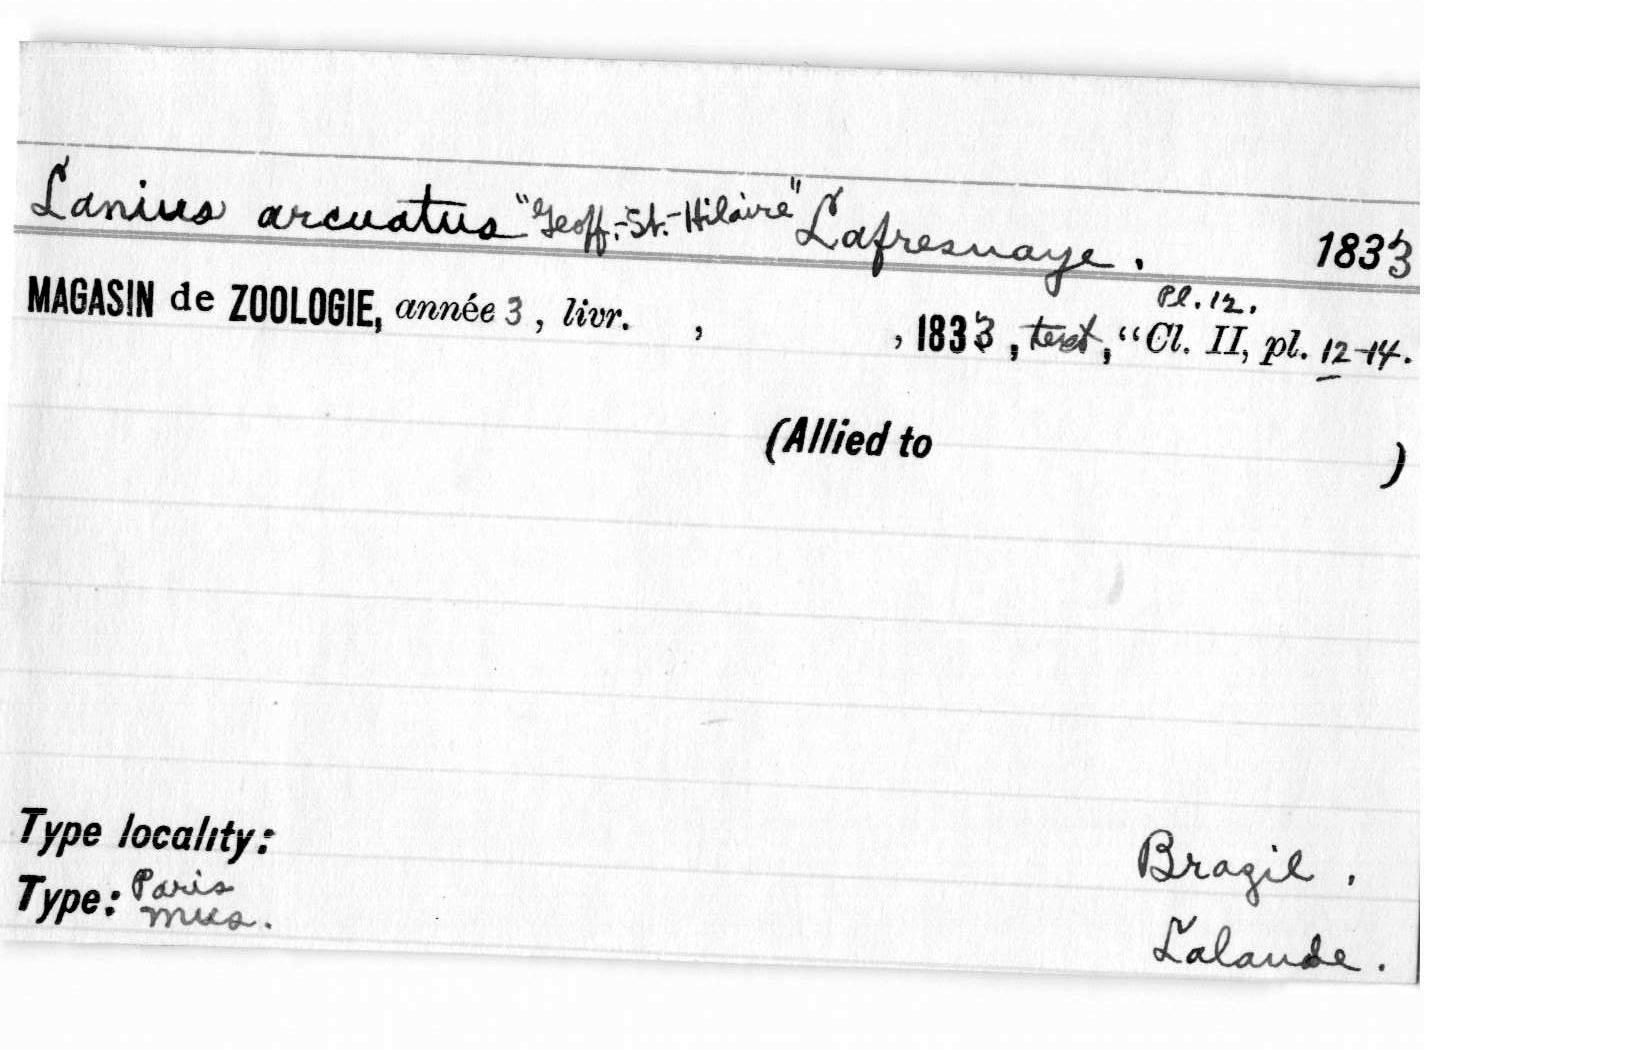 Lanius arcuatus "Geoff.-St.-Hilaire" Lafresnaye. 1833
Pl. 12.
MAGASIN de ZOOLOGIE, année 3, livr. , , 1833, text, "Cl. II, pl. 12-14.
(Allied to )
Type locality: Brazil.
Type: Paris Mus. Lalande.